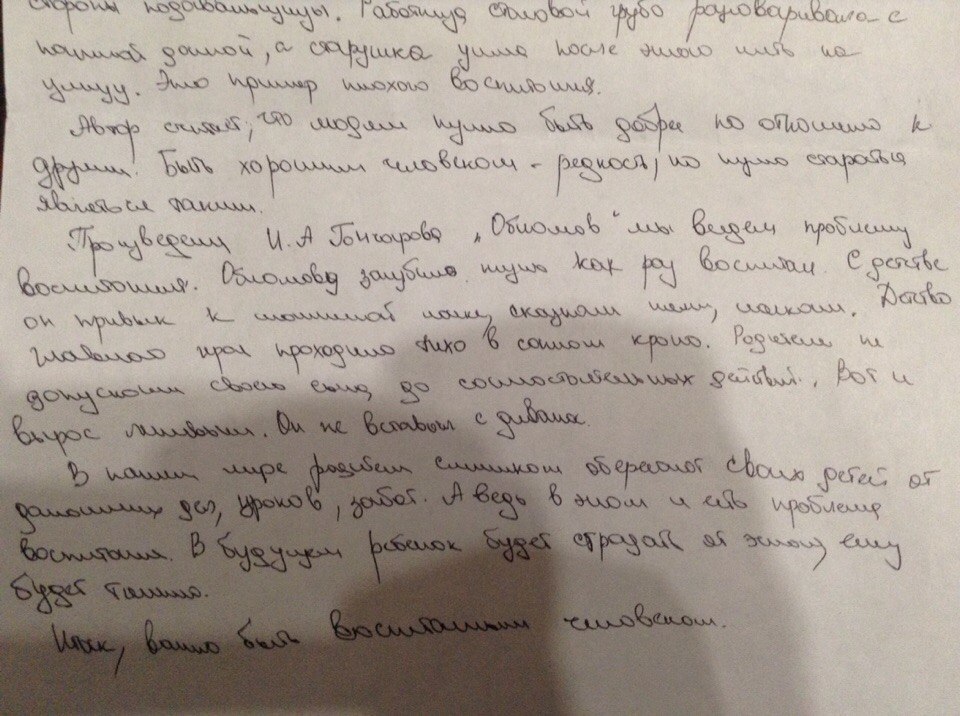 стороны подавальщицы. Работница столовой грубо разговаривала с
пожилой дамой, а старушка ушла после этого пить на
улицу. Это пример плохого воспитания.
Автор считает, что людям нужно быть добрее по отношению к
другим! Быть хорошим человеком - редкость, но нужно стараться
являться таким.
Произведении И.А Гончарова „Обломов" мы видем проблему
воспитания. Обломова загубило как раз воспитан. С детства
он привык к маминой ласке, сказкам няни, ласкам. Детство
главного героя проходило тихо в сонном краю. Родители не
допускали своего сына до самостоятельных действий. Вот и
вырос ленивым. Он не вставал с дивана.
В нашем мире родители слишком оберегают своих детей от
домашних дел, уроков, забот. А ведь в этом и есть проблема
воспитания. В будущем ребенок будет страдать от этого, ему
будет тяжело.
Итак, важно быть воспитанным человеком.